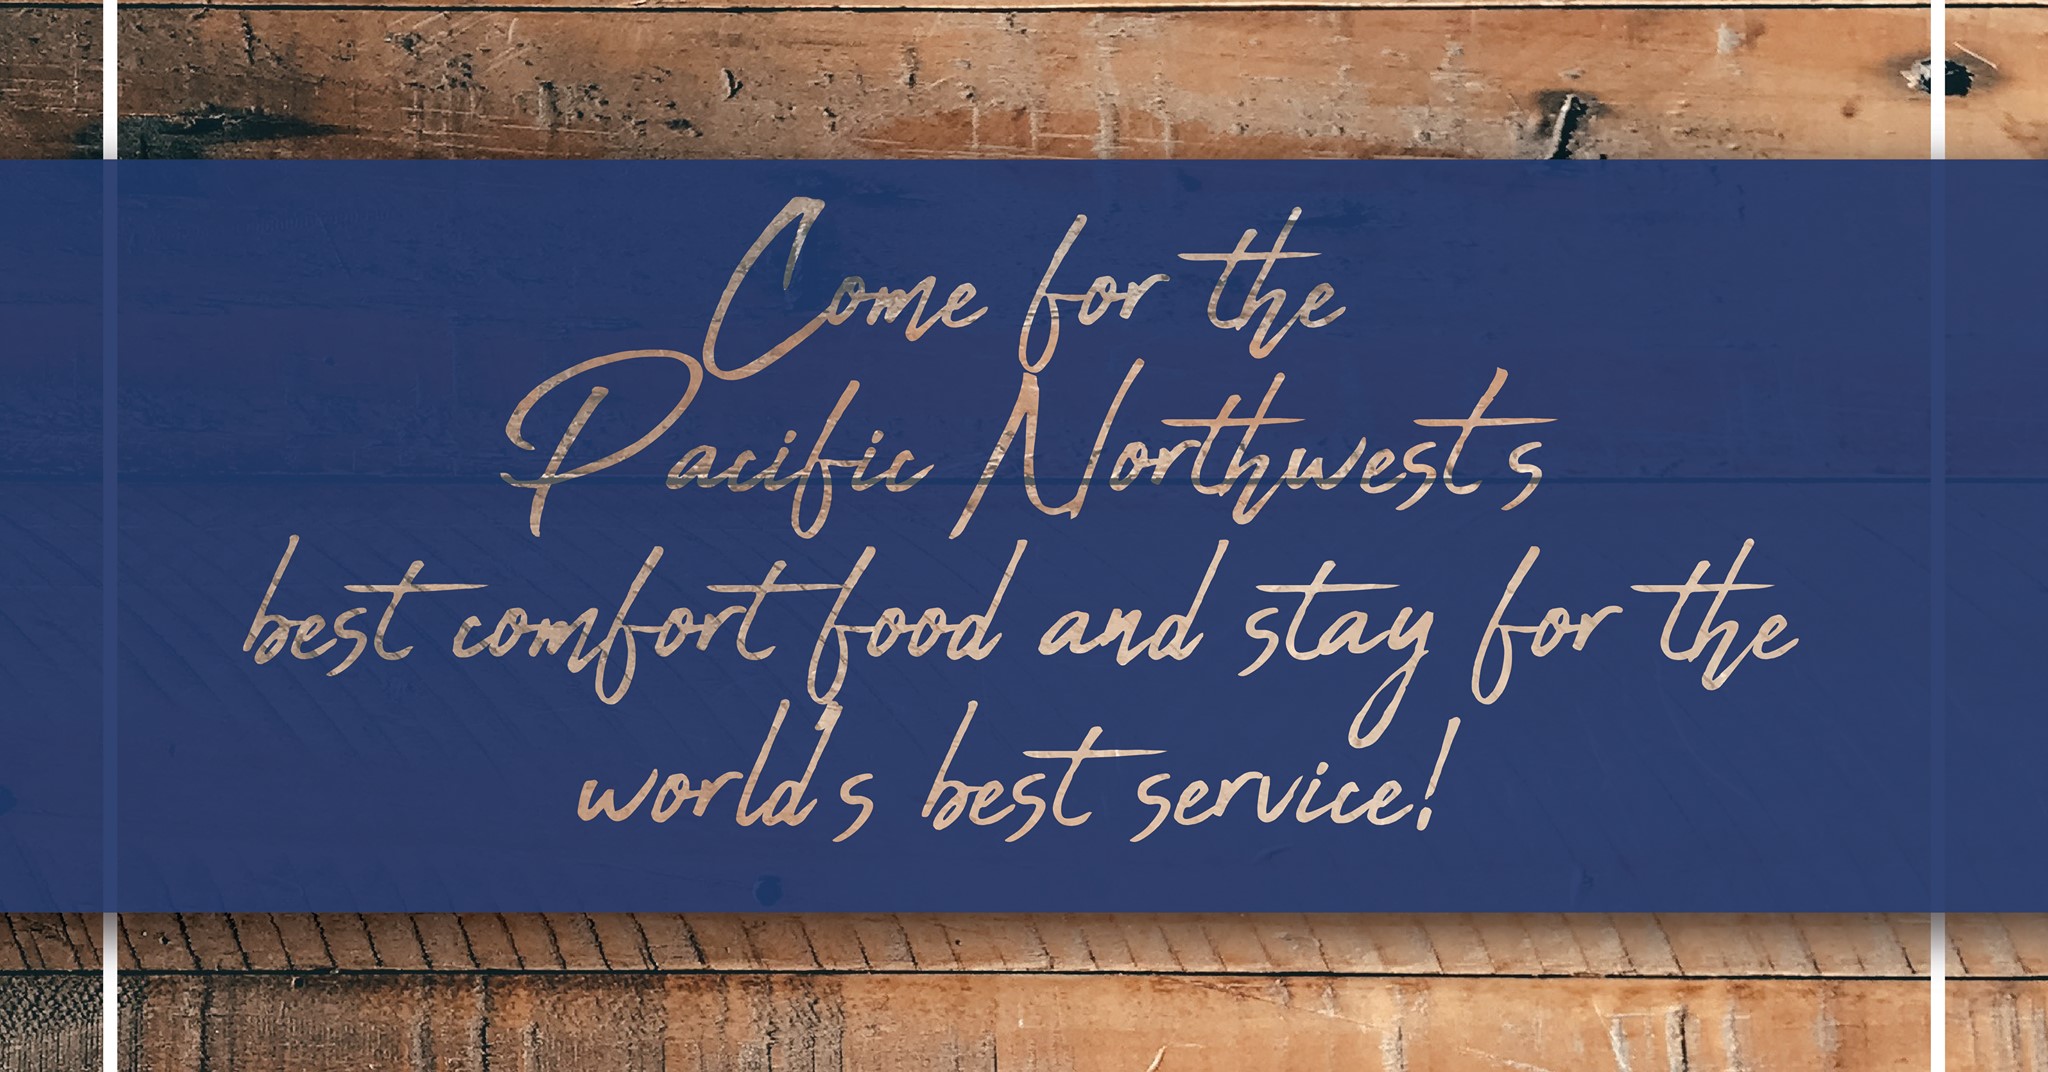 Come for the
Pacific Northwest s
best comfort food and stay for the
world s best service!